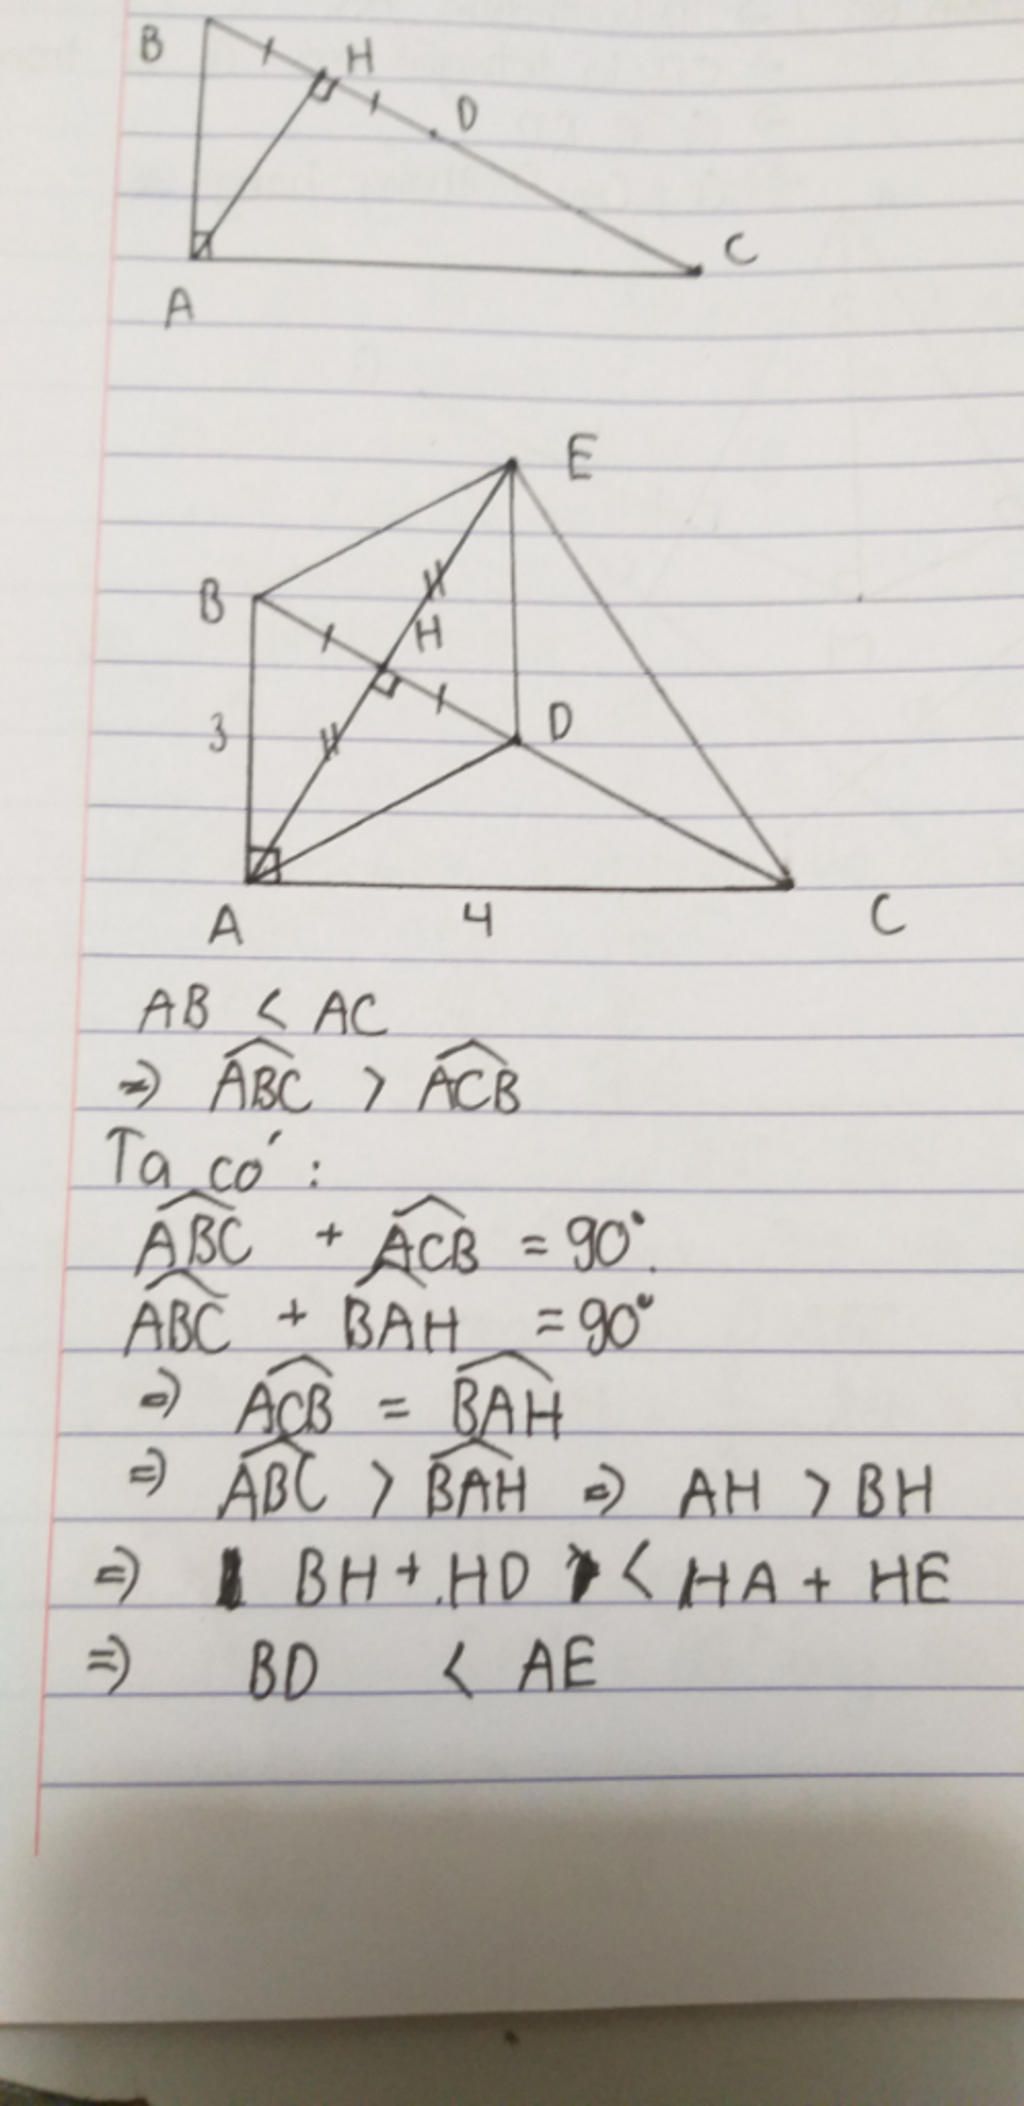 B
H
D
C
A
E
B
H
3
D
A
4
C
AB < AC
=> \widehat{ABC} > \widehat{ACB}
Ta có :
\widehat{ABC} + \widehat{ACB} = 90°.
\widehat{ABC} + \widehat{BAH} = 90°
=> \widehat{ACB} = \widehat{BAH}
=> \widehat{ABC} > \widehat{BAH} => AH > BH
=> BH + HD < HA + HE
=> BD < AE